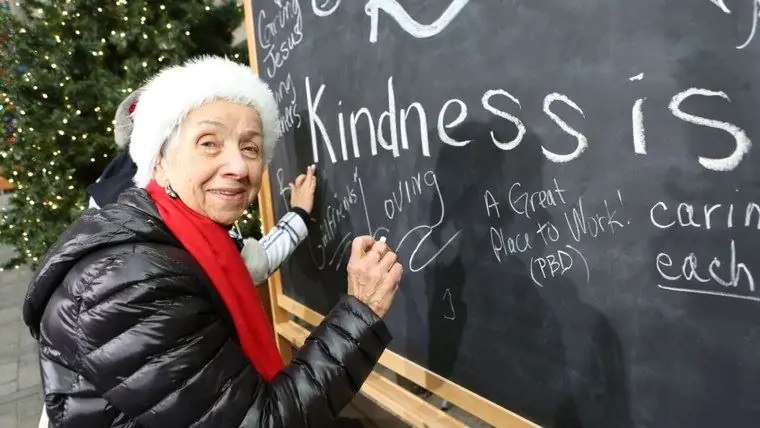 Giving
Jesus
Kindness is
Girlfriends
Loving
A Great
Place to Work!
(PBD)
carin
each